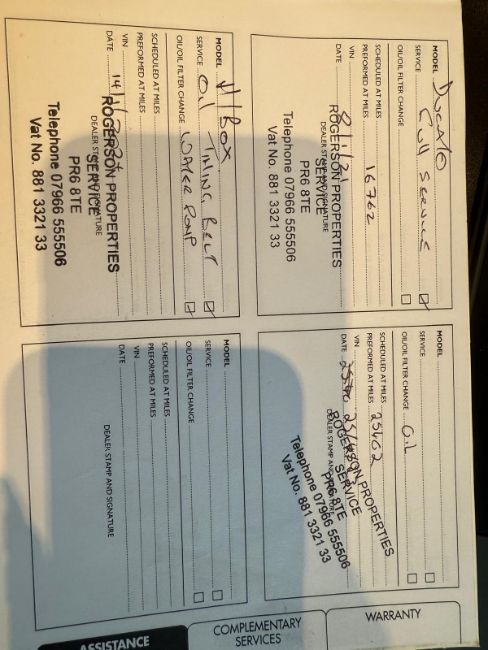 MODEL Ducato
SERVICE Full Service
OIL/OIL FILTER CHANGE
SCHEDULED AT MILES
PREFORMED AT MILES 16762
VIN
DATE
DEALER STAMP AND SIGNATURE
ROGERSON PROPERTIES
SERVICE
PR6 8TE
Telephone 07966 555506
Vat No. 881 3321 33
MODEL
SERVICE
OIL/OIL FILTER CHANGE Oil
SCHEDULED AT MILES
PREFORMED AT MILES 25602
VIN
DATE
DEALER STAMP AND SIGNATURE
ROGERSON PROPERTIES
SERVICE
PR6 8TE
Telephone 07966 555506
Vat No. 881 3321 33
MODEL
SERVICE Oil TIMING BELT
OIL/OIL FILTER CHANGE WATER PUMP
SCHEDULED AT MILES
PREFORMED AT MILES
VIN
DATE
DEALER STAMP AND SIGNATURE
ROGERSON PROPERTIES
SERVICE
PR6 8TE
Telephone 07966 555506
Vat No. 881 3321 33
MODEL
SERVICE
OIL/OIL FILTER CHANGE
SCHEDULED AT MILES
PREFORMED AT MILES
VIN
DATE
DEALER STAMP AND SIGNATURE
WARRANTY
COMPLEMENTARY
SERVICES
ASSISTANCE